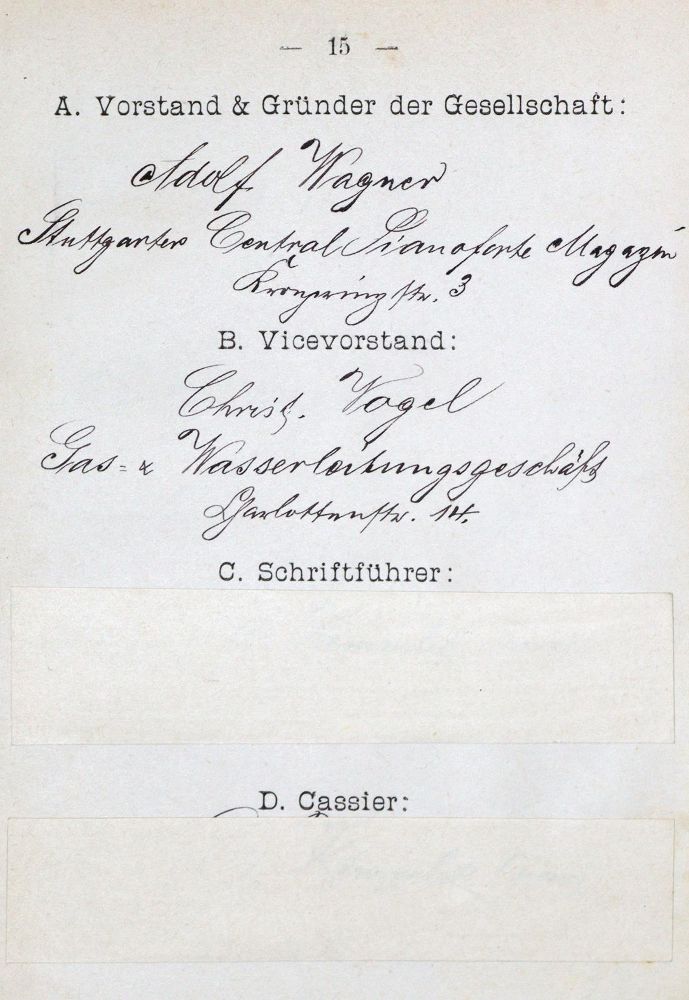 — 15 —
A. Vorstand & Gründer der Gesellschaft:
Adolf Wagner
Stuttgarter Central Pianoforte Magazin
str. 3
B. Vicevorstand:
Christ. Vogel
Gas- & Wasserleitungsgeschäft
Charlottenstr. 14.
C. Schriftführer:
D. Cassier: